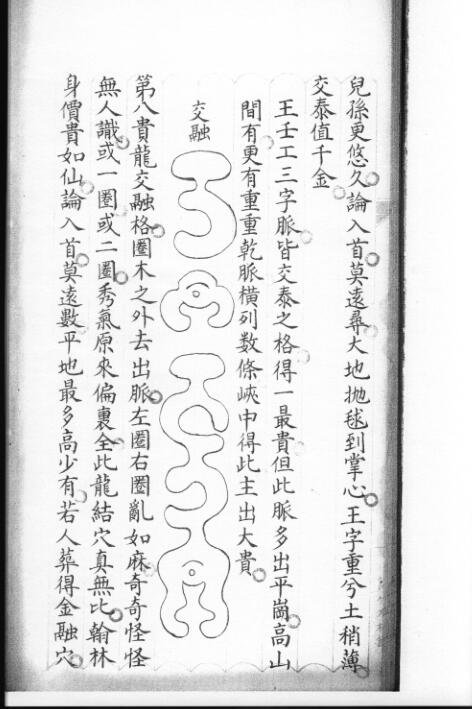 兒孫更悠久論入首莫遠尋大地拋毬到掌心王字重兮土稍薄
交泰值千金
王壬工三字脈皆交泰之格得一最貴但此脈多出平崗高山
間有更有重重乾脈橫列數條峽中得此主出大貴
交融
第八貴龍交融格圈木之外去出脈左圈右圈亂如麻奇奇怪怪
無人識或一圈或二圈秀氣原來偏裹全此龍結穴真無比翰林
身價貴如仙論入首莫遠數平地最多高少有若人葬得金融穴